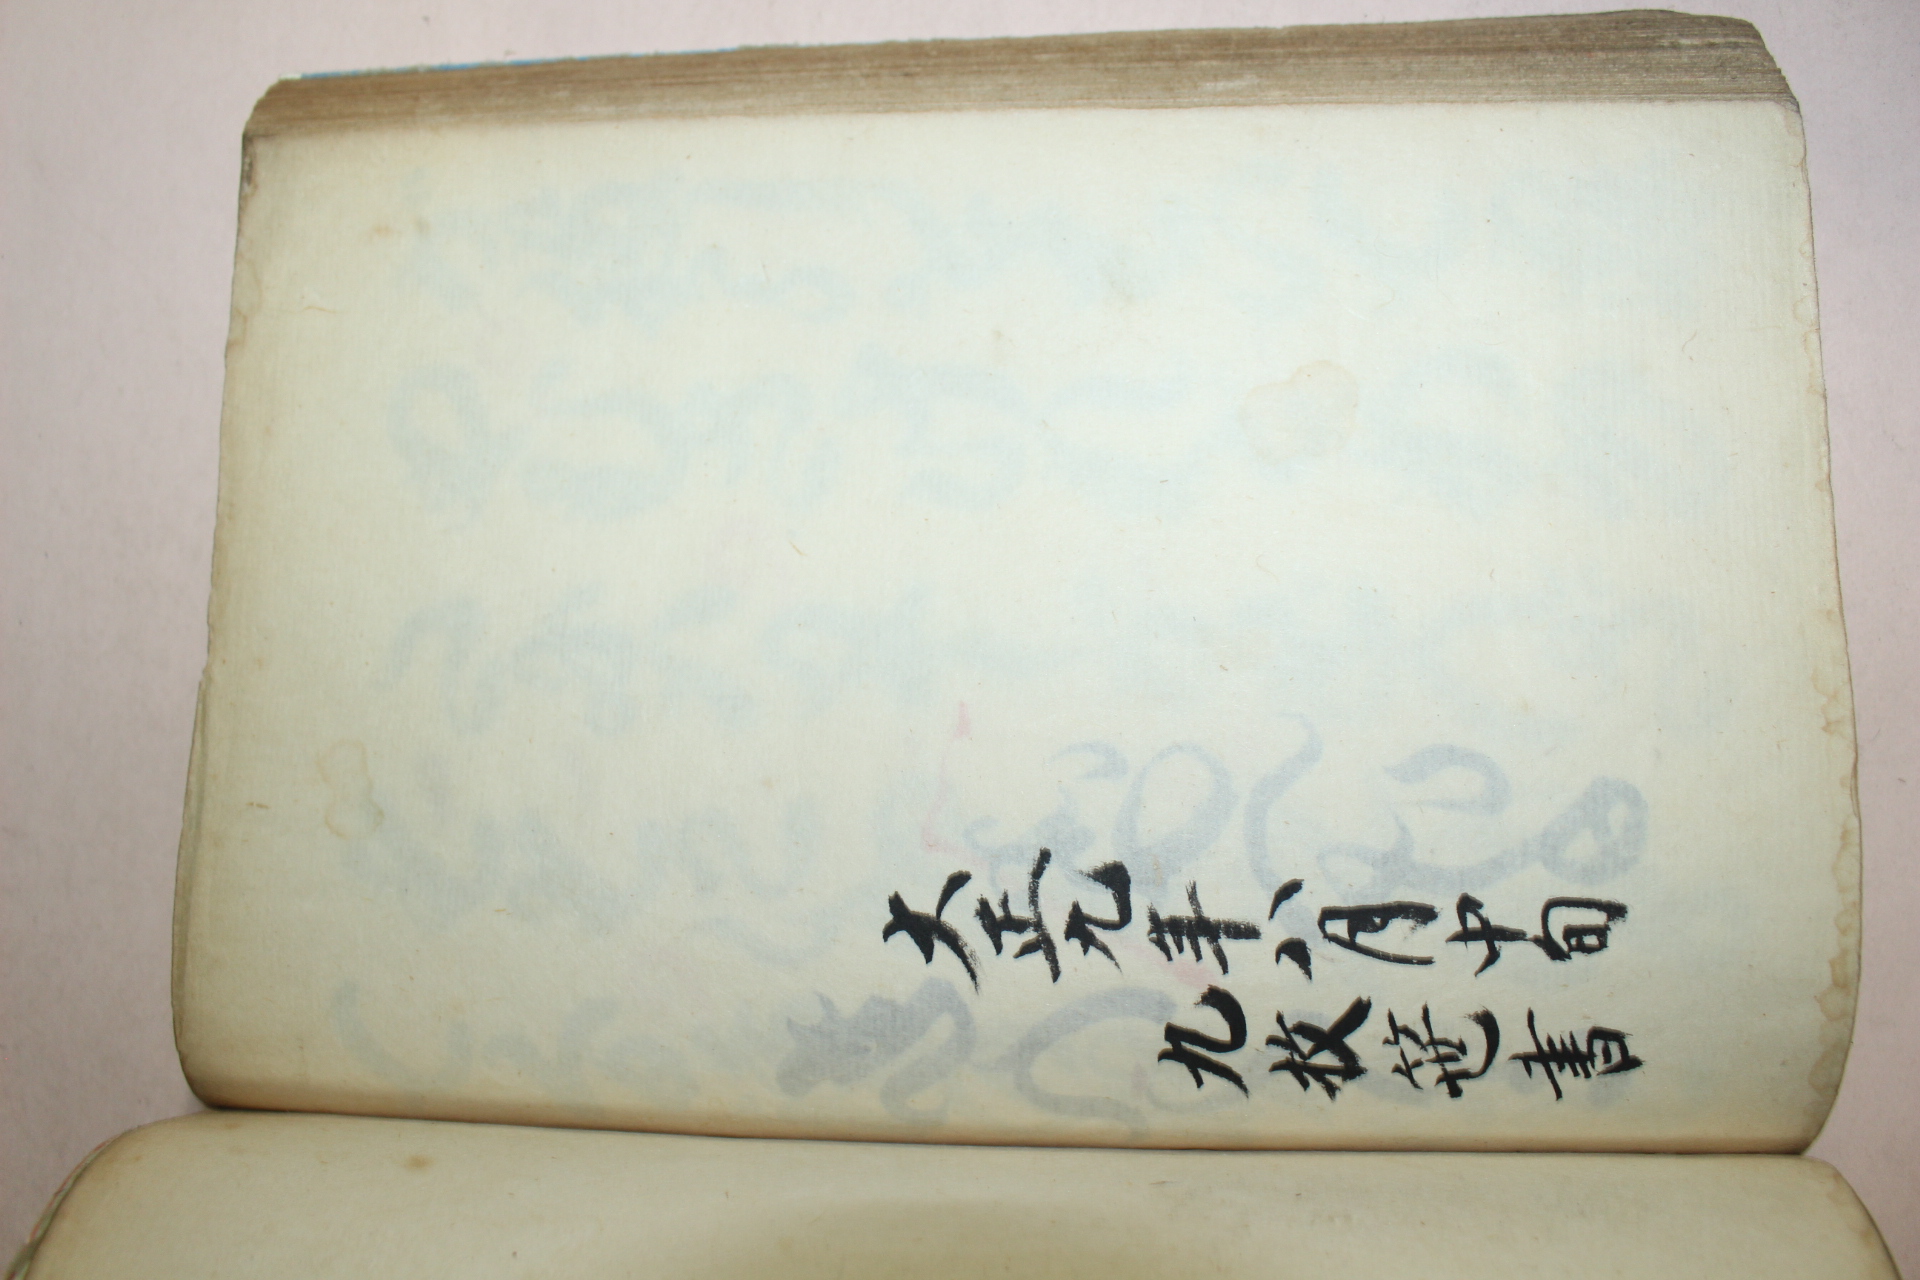 大正九年八月中旬
九枚書